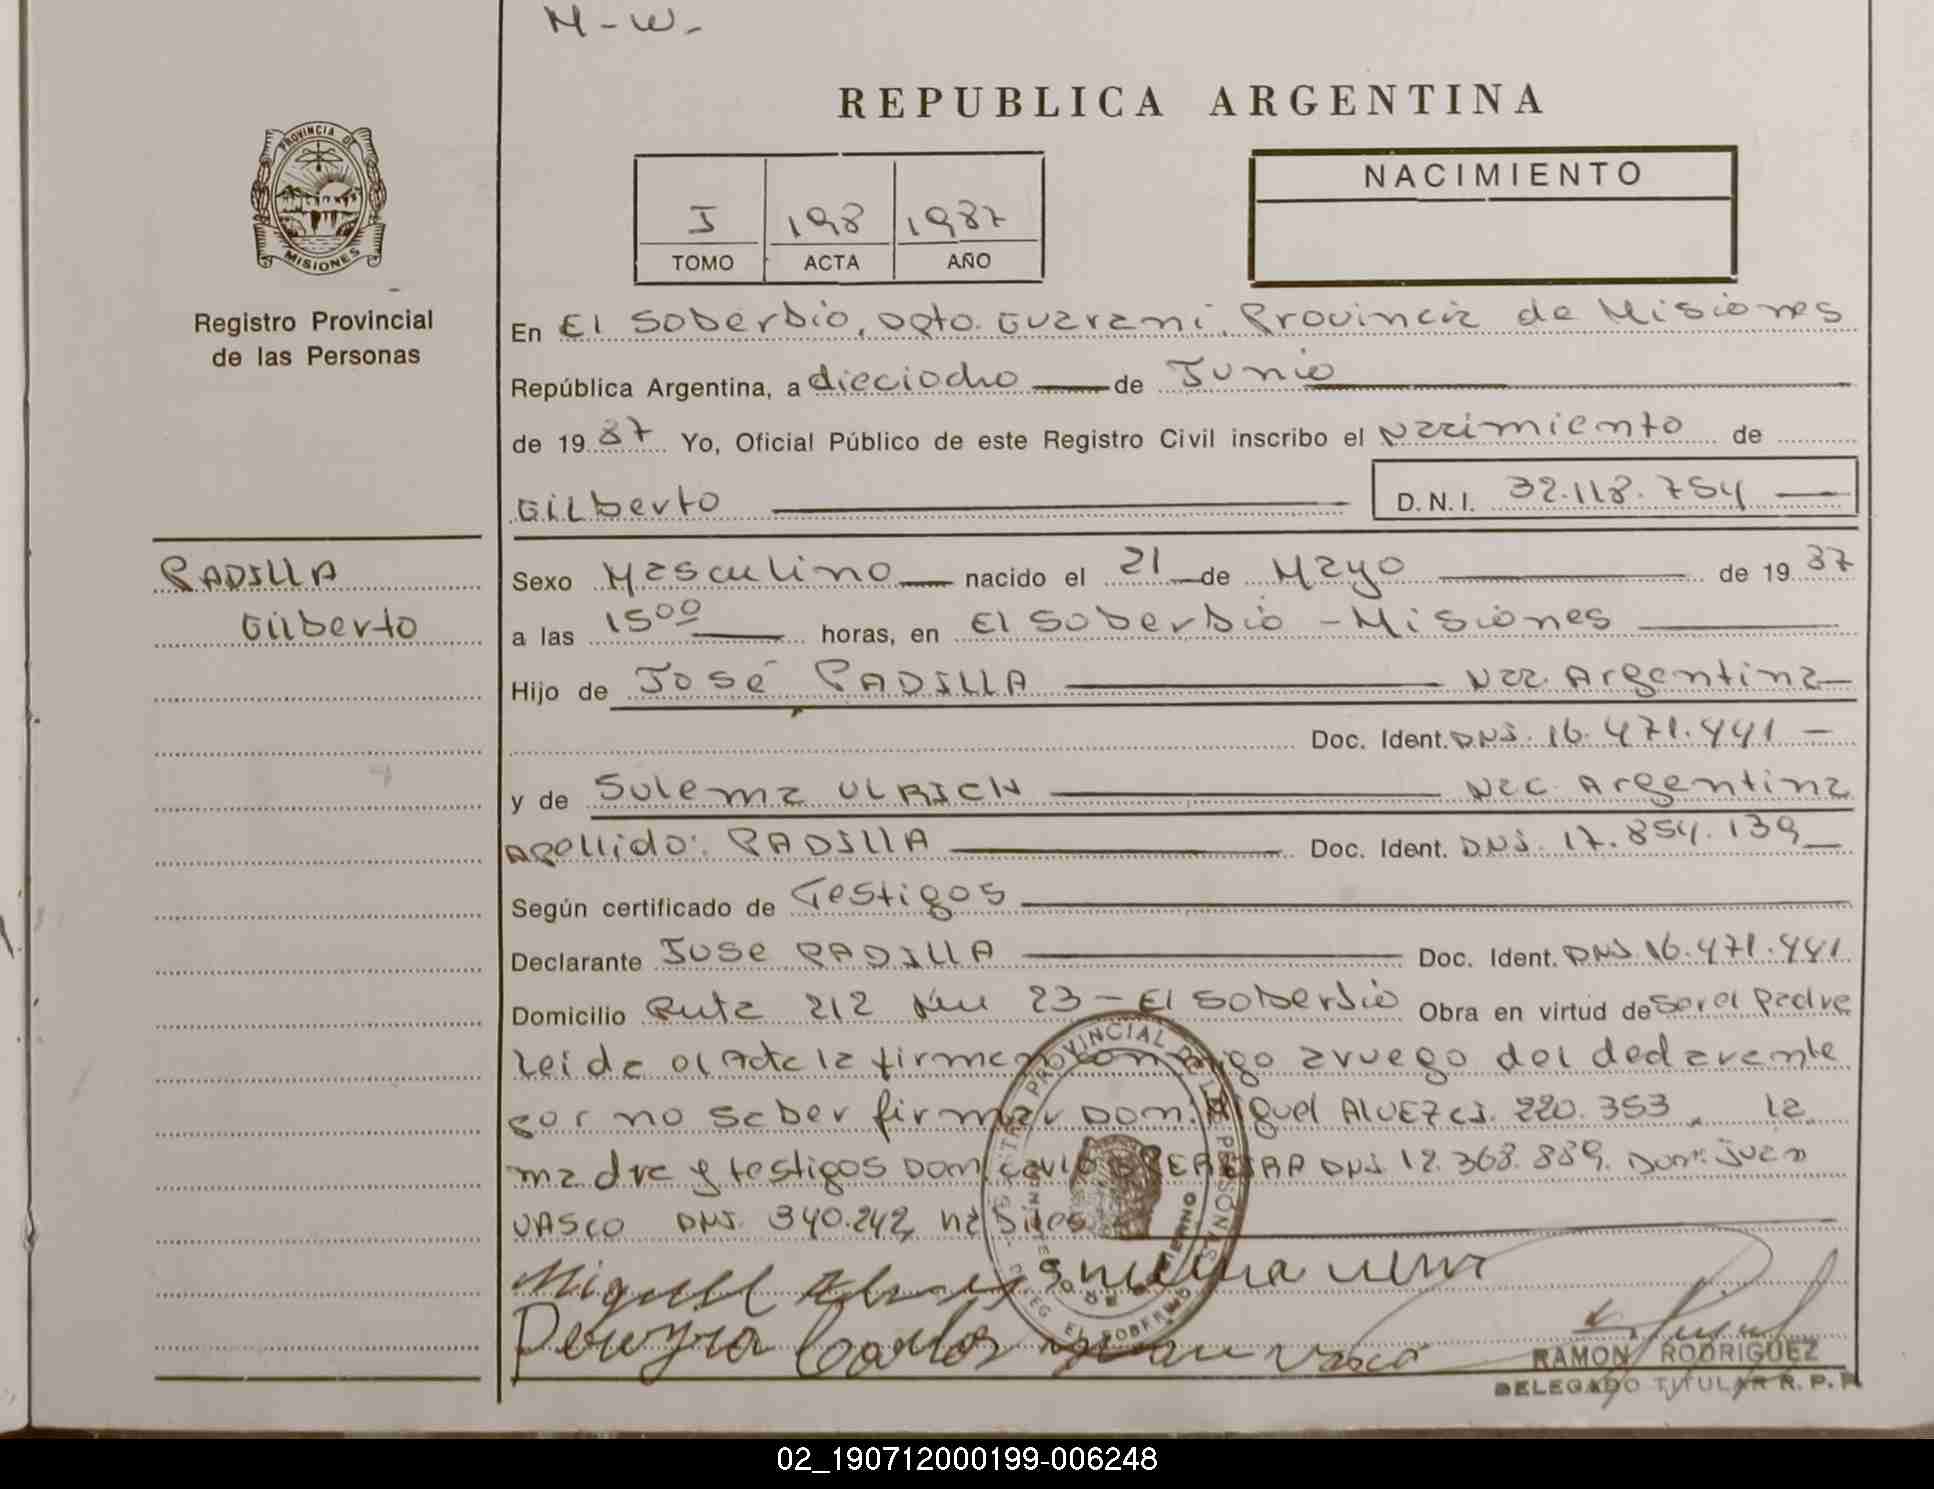 M-W-
REPUBLICA ARGENTINA
PROVINCIA DE
MISIONES
Registro Provincial
de las Personas
I 198 1987
TOMO ACTA AÑO
NACIMIENTO
En El Soberbio, Dpto. Guarani, Provincia de Misiones
República Argentina, a dieciocho de Junio
de 19 87 Yo, Oficial Público de este Registro Civil inscribo el Nacimiento de
Gilberto D.N.I. 32.118.754
PADILLA
Gilberto
Sexo Masculino nacido el 21 de Mayo de 19 87
a las 15 00 horas, en El Soberbio - Misiones
Hijo de José PADILLA Nac. Argentina
Doc. Ident. DNI. 16.471.441
y de Sulema ULRICH Nac. Argentina
Apellido: PADILLA Doc. Ident. DNI. 17.854.139
Según certificado de Testigos
Declarante José PADILLA Doc. Ident. DNI. 16.471.441
Domicilio Ruta 212 Km 23 - El Soberbio Obra en virtud de ser el Padre
Leida el Acta la firman conmigo a ruego del declarante
por no saber firmar Don. Miguel ALVEZ CI. 220.353, la
madre y testigos Don DNI. 12.368.889. Don. Juan
VASCO DNI. 340.242, habiles
Miguel
Pereyra Carlos Juan Vasco
RAMON RODRIGUEZ
DELEGADO TITULAR R. P. P.
02_190712000199-006248